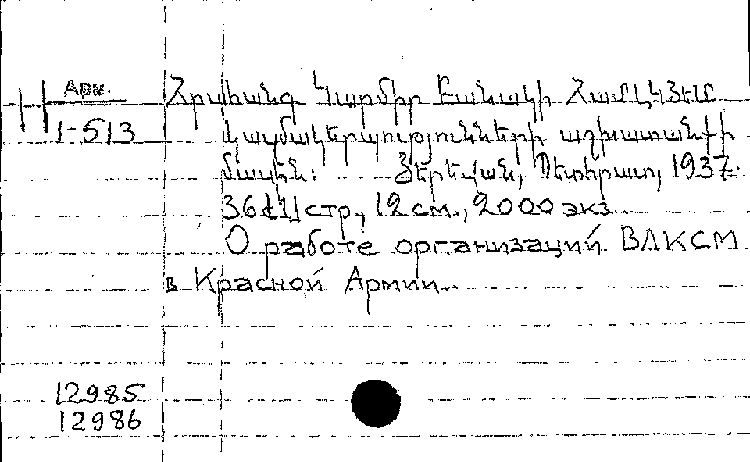 Арм.
1-513
Հրահանգ Կարմիր Բանակի ՀամԼԿՅԵՄ
կազմակերպությունների աշխատանքի
մասին: Յերեվան, Պետհրատ, 1937.
36 стр., 12 см., 2000 экз.
О работе организаций ВЛКСМ
в Красной Армии.
12985
12986